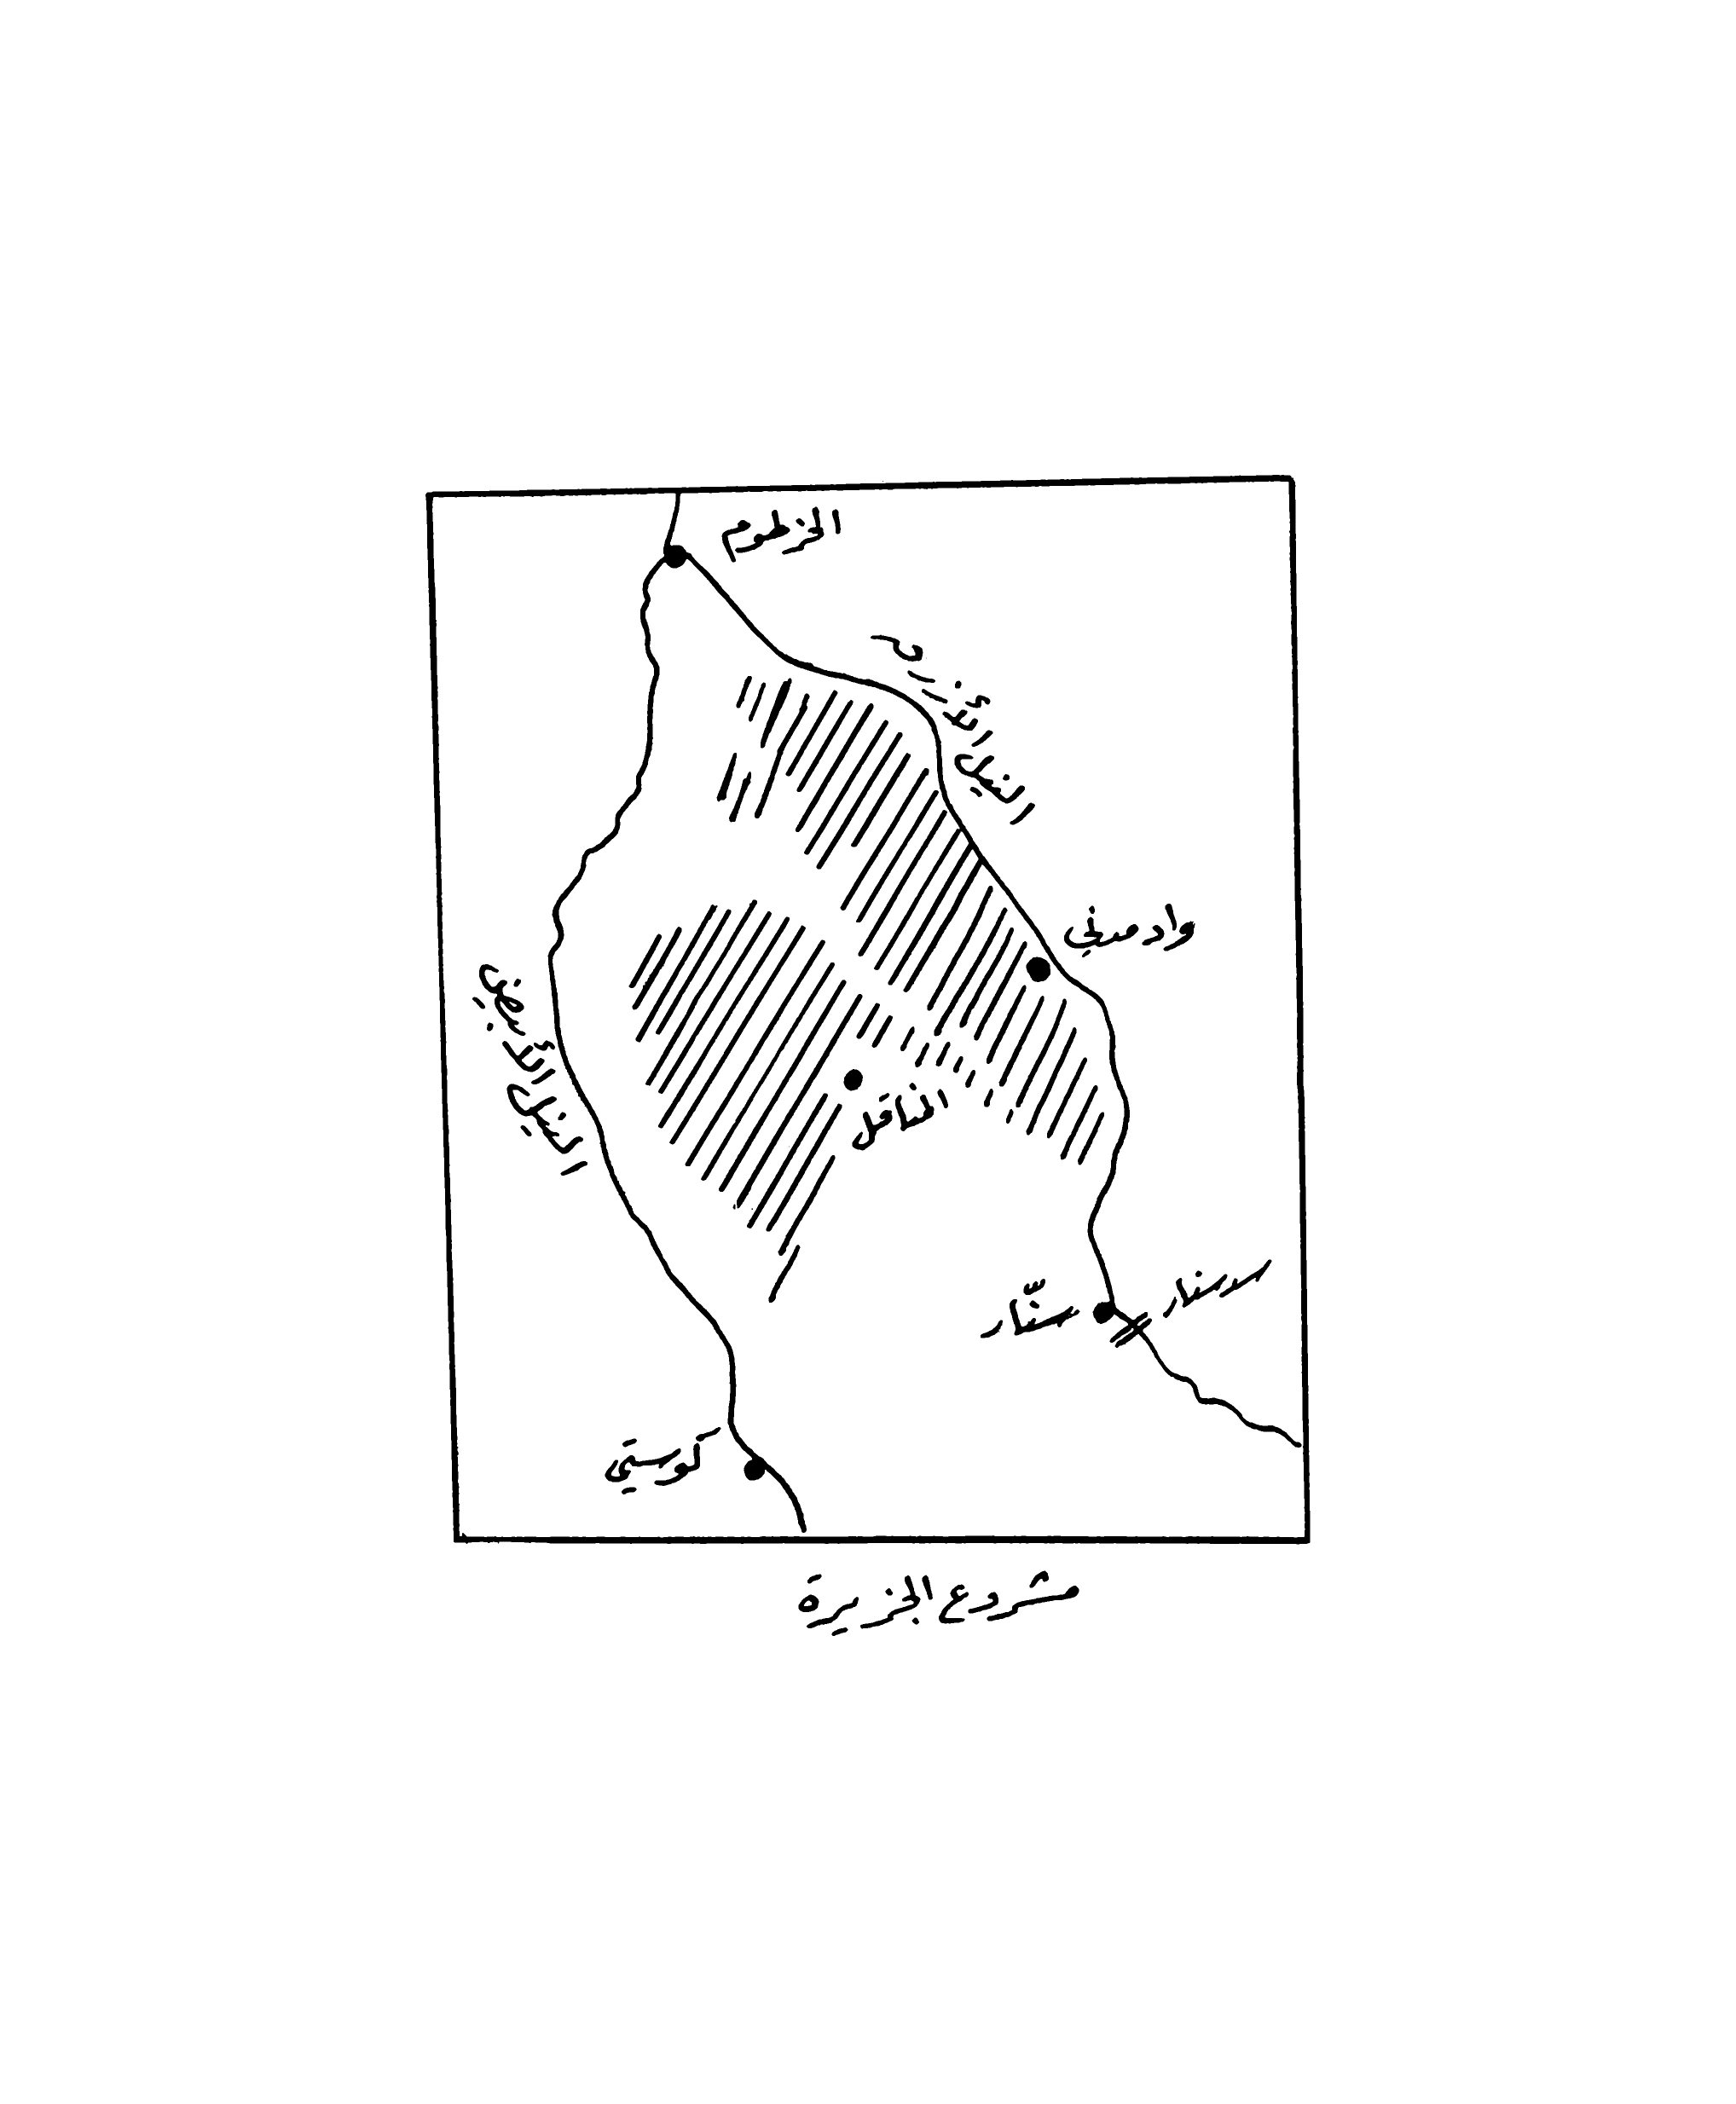 الخرطوم
النيل
واد مدني
النيل
المناقل
سنار
سنّار
كوستي
مشروع الجزيرة